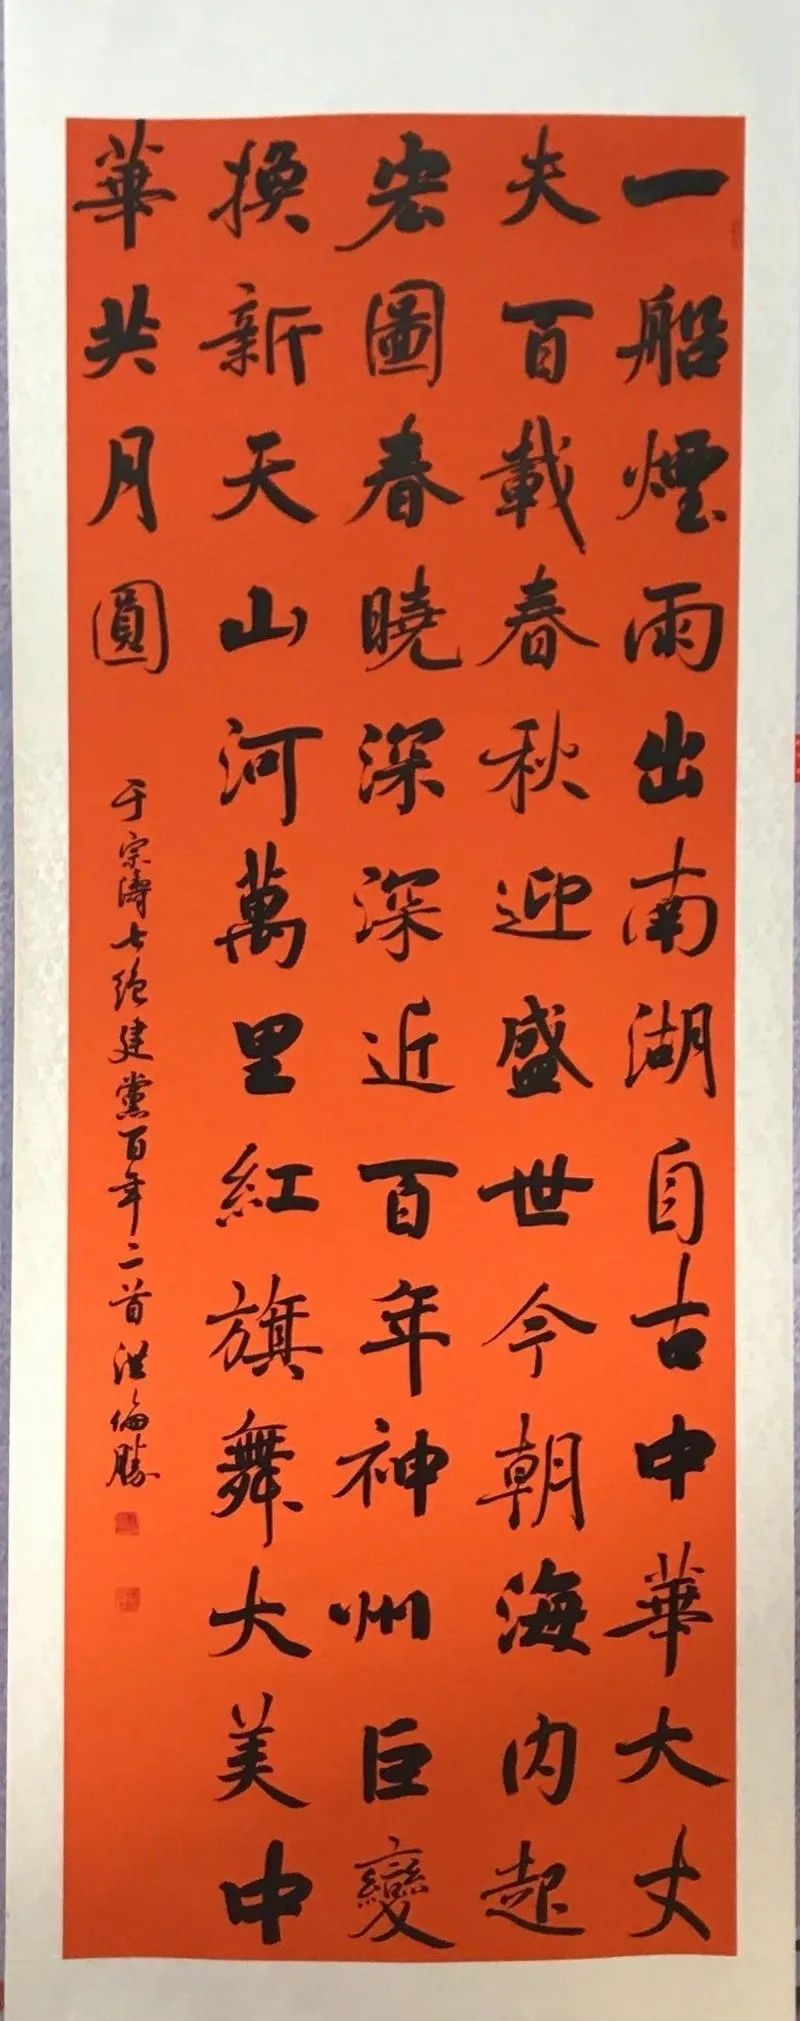 一船煙雨出南湖自古中華大丈
夫百載春秋迎盛世今朝海内起
宏圖春曉深深近百年神州巨變
換新天山河萬里紅旗舞大美中
華共月圓
于宗濤七絕建黨百年二首洪倫勝